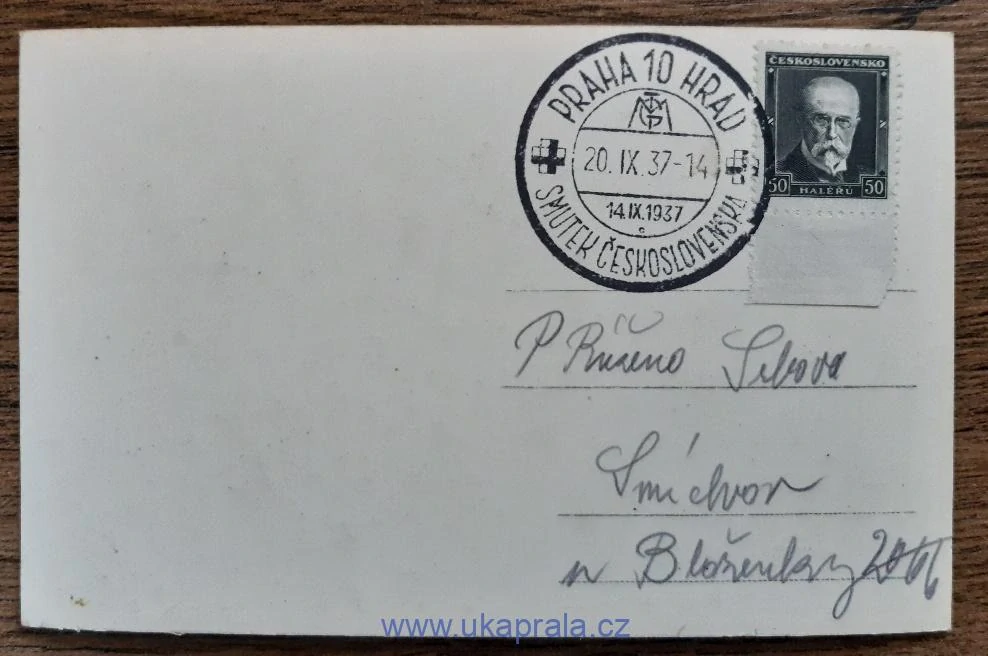 PRAHA 10 HRAD
20. IX. 37-14
14.IX.1937
c
SMUTEK ČESKOSLOVENSKA
ČESKOSLOVENSKO
50 HALÉŘŮ 50
P Růženo
Smíchov
Bloženky
www.ukaprala.cz